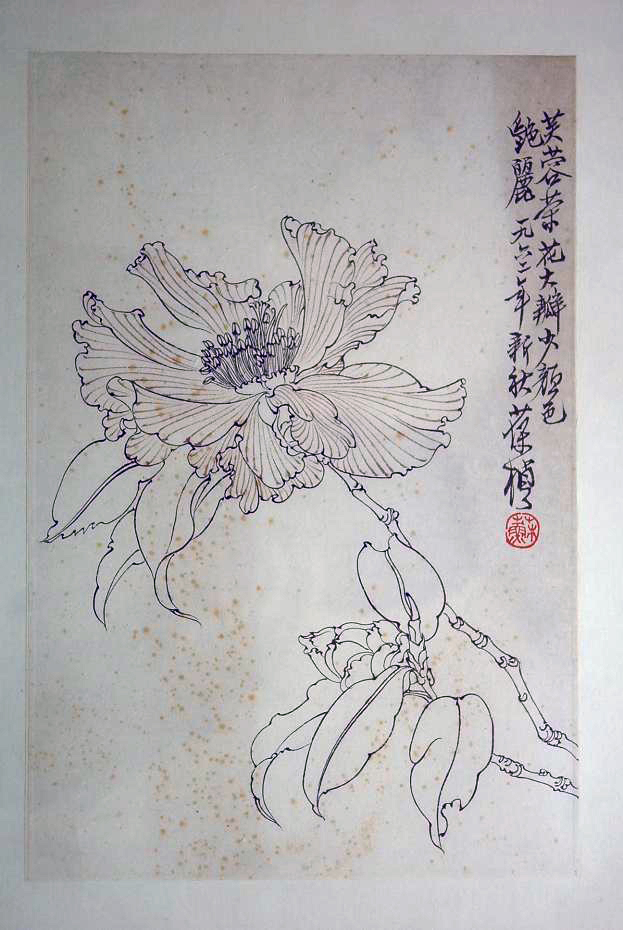 芙蓉茶花大瓣少顏色
艷麗 一九六二年新秋 葆楨